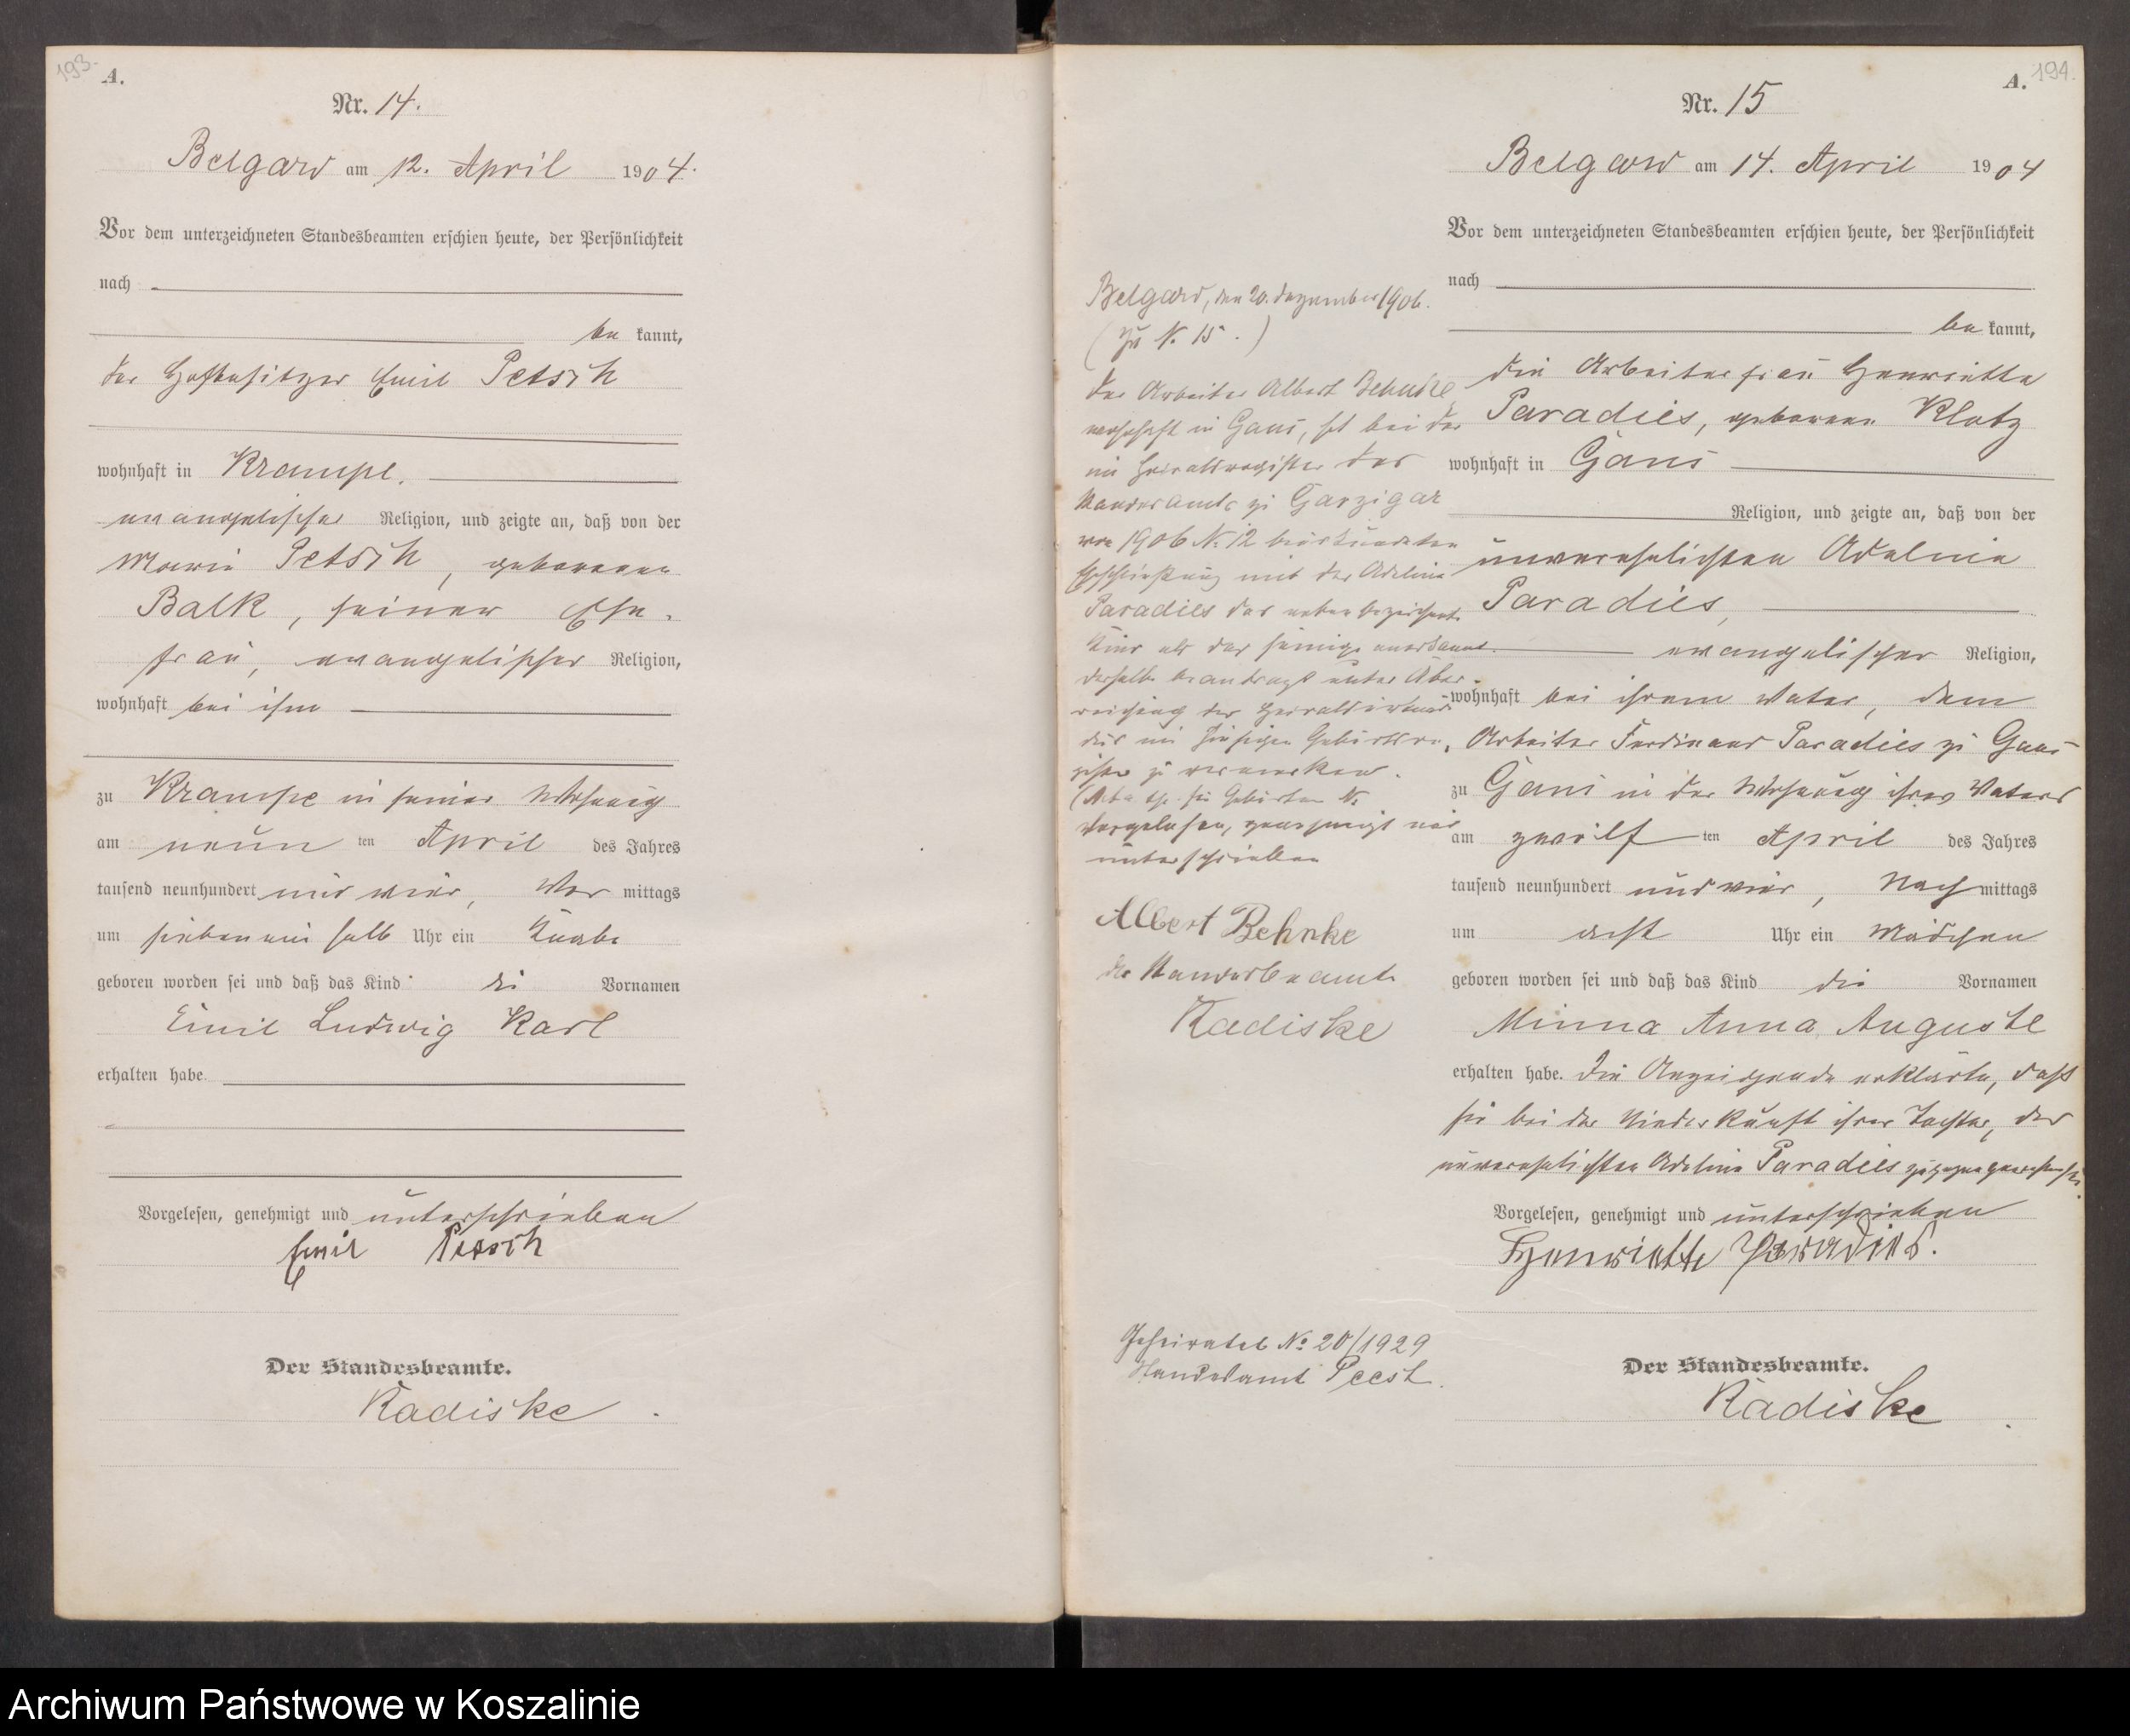 193.
A.
Nr. 14.
Belgard am 12. April 1904.
Vor dem unterzeichneten Standesbeamten erschien heute, der Persönlichkeit
nach
be kannt,
der Hofbesitzer Emil Petsch
wohnhaft in Krampe.
evangelischer Religion, und zeigte an, daß von der
Marie Petsch, geborenen
Balk, seiner Ehe-
frau, evangelischer Religion,
wohnhaft bei ihm
zu Krampe in seiner Wohnung
am neun ten April des Jahres
tausend neunhundert und vier, Vor mittags
um siebenein halb Uhr ein Knabe
geboren worden sei und daß das Kind die Vornamen
Emil Ludwig Karl
erhalten habe.
Vorgelesen, genehmigt und unterschrieben
Emil Petsch
Der Standesbeamte.
Radiske
194.
A.
Nr. 15
Belgard am 14. April 1904
Vor dem unterzeichneten Standesbeamten erschien heute, der Persönlichkeit
nach
be kannt,
die Arbeiterfrau Henriette
Paradies, geborene Klotz
wohnhaft in Gans
Religion, und zeigte an, daß von der
unverehelichten Adeline
Paradies,
evangelischer Religion,
wohnhaft bei ihrem Vater, dem
Arbeiter Ferdinand Paradies zu Gans
zu Gans in der Wohnung ihres Vaters
am zwölf ten April des Jahres
tausend neunhundert und vier, Nach mittags
um acht Uhr ein Mädchen
geboren worden sei und daß das Kind die Vornamen
Minna Anna Auguste
erhalten habe. Die Anzeigende erklärte, daß
sie bei der Niederkunft ihrer Tochter, der
unverehelichten Adeline Paradies zugegen gewesen sei.
Vorgelesen, genehmigt und unterschrieben
Henriette Paradies.
Der Standesbeamte.
Radiske
Belgard, den 20. Dezember 1906.
(Zu N. 15.)
Der Arbeiter Albert Behnke
wohnhaft in Gans, hat bei der
im Heiratsregister des
Standesamts zu Garzigar
von 1906 Nr. 12 beurkundeten
Eheschließung mit der Adeline
Paradies das nebenbezeichnete
Kind als das seinige anerkannt.
Derselbe beantragt unter Über-
reichung der Heiratsurkunde
dies im hiesigen Geburtsre-
gister zu vermerken.
Vorgelesen, genehmigt und
unterschrieben
Albert Behnke
Der Standesbeamte
Radiske
Geheiratet No 20/1929
Standesamt Peest.
Archiwum Państwowe w Koszalinie